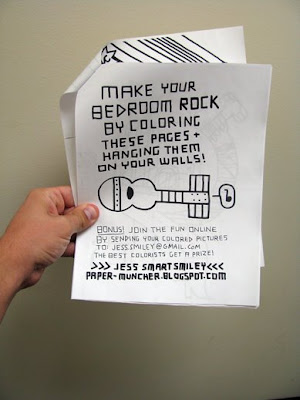 MAKE YOUR
BEDROOM ROCK
BY COLORING
THESE PAGES +
HANGING THEM
ON YOUR WALLS!
BONUS! JOIN THE FUN ONLINE
BY SENDING YOUR COLORED PICTURES
TO JESS.SMILEY@GMAIL.COM
THE BEST COLORISTS GET A PRIZE!
>>> JESS SMARTSMILEY<<<
PAPER-MUNCHER.BLOGSPOT.COM